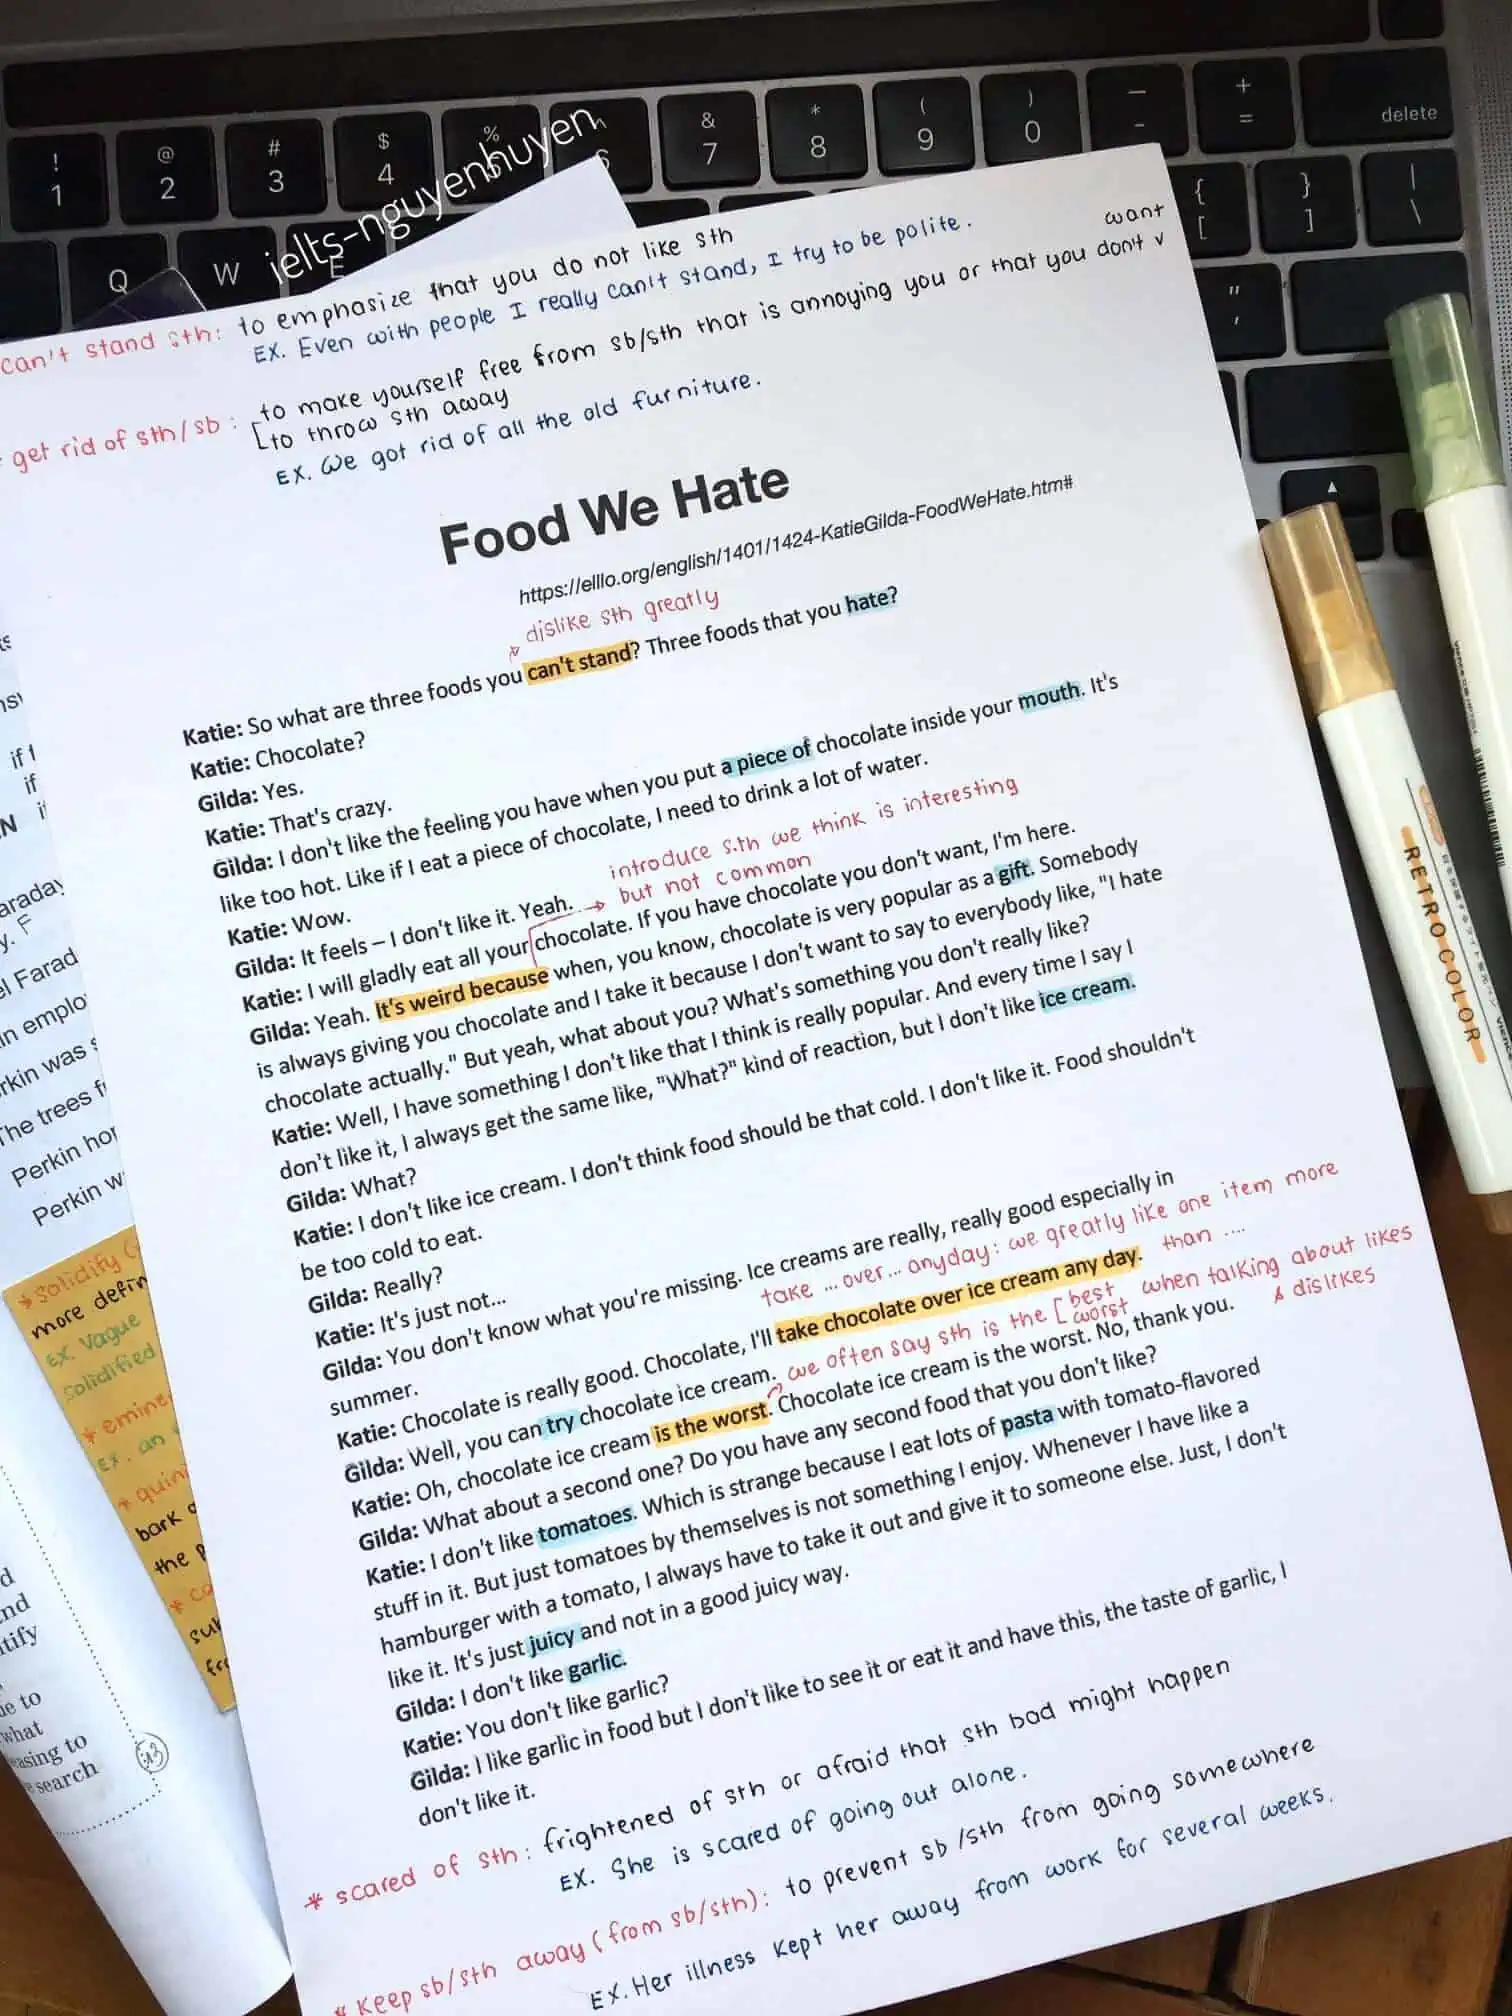 ! 1 @ 2 # 3 $ 4 % ^ 6 & 7 * 8 ( 9 ) 0 _ - + = delete
Q W E { [ } ] | \
" '
ielts-nguyenhuyen
can't stand sth: to emphasize that you do not like sth
EX. Even with people I really can't stand, I try to be polite.
want
get rid of sth/sb: to make yourself free from sb/sth that is annoying you or that you don't v
[to throw sth away
EX. We got rid of all the old furniture.
Food We Hate
https://elllo.org/english/1401/1424-KatieGilda-FoodWeHate.htm#
dislike sth greatly
Katie: So what are three foods you can't stand? Three foods that you hate?
Katie: Chocolate?
Gilda: Yes.
Katie: That's crazy.
Gilda: I don't like the feeling you have when you put a piece of chocolate inside your mouth. It's
like too hot. Like if I eat a piece of chocolate, I need to drink a lot of water.
Katie: Wow.
introduce s.th we think is interesting
but not common
Gilda: It feels – I don't like it. Yeah.
Katie: I will gladly eat all your chocolate. If you have chocolate you don't want, I'm here.
Gilda: Yeah. It's weird because when, you know, chocolate is very popular as a gift. Somebody
is always giving you chocolate and I take it because I don't want to say to everybody like, "I hate
chocolate actually." But yeah, what about you? What's something you don't really like?
Katie: Well, I have something I don't like that I think is really popular. And every time I say I
don't like it, I always get the same like, "What?" kind of reaction, but I don't like ice cream.
Gilda: What?
Katie: I don't like ice cream. I don't think food should be that cold. I don't like it. Food shouldn't
be too cold to eat.
Gilda: Really?
Katie: It's just not...
Gilda: You don't know what you're missing. Ice creams are really, really good especially in
summer.
take ... over... anyday: we greatly like one item more
than ....
Katie: Chocolate is really good. Chocolate, I'll take chocolate over ice cream any day.
Gilda: Well, you can try chocolate ice cream.
we often say sth is the [best worst when talking about likes
& dislikes
Katie: Oh, chocolate ice cream is the worst. Chocolate ice cream is the worst. No, thank you.
Gilda: What about a second one? Do you have any second food that you don't like?
Katie: I don't like tomatoes. Which is strange because I eat lots of pasta with tomato-flavored
stuff in it. But just tomatoes by themselves is not something I enjoy. Whenever I have like a
hamburger with a tomato, I always have to take it out and give it to someone else. Just, I don't
like it. It's just juicy and not in a good juicy way.
Gilda: I don't like garlic.
Katie: You don't like garlic?
Gilda: I like garlic in food but I don't like to see it or eat it and have this, the taste of garlic, I
don't like it.
* scared of sth: frightened of sth or afraid that sth bad might happen
EX. She is scared of going out alone.
* Keep sb/sth away (from sb/sth): to prevent sb/sth from going somewhere
EX. Her illness kept her away from work for several weeks.
RETRO COLOR
if
if
N
y. F
el Farad
in emplo
rkin was
The trees f
Perkin hor
Perkin w
* solidify
more defin
EX. Vague
solidified
* emine
EX. an
* quin
bark
the p
* ca
sub
fr
d
nd
ntify
e to
what
easing to
search